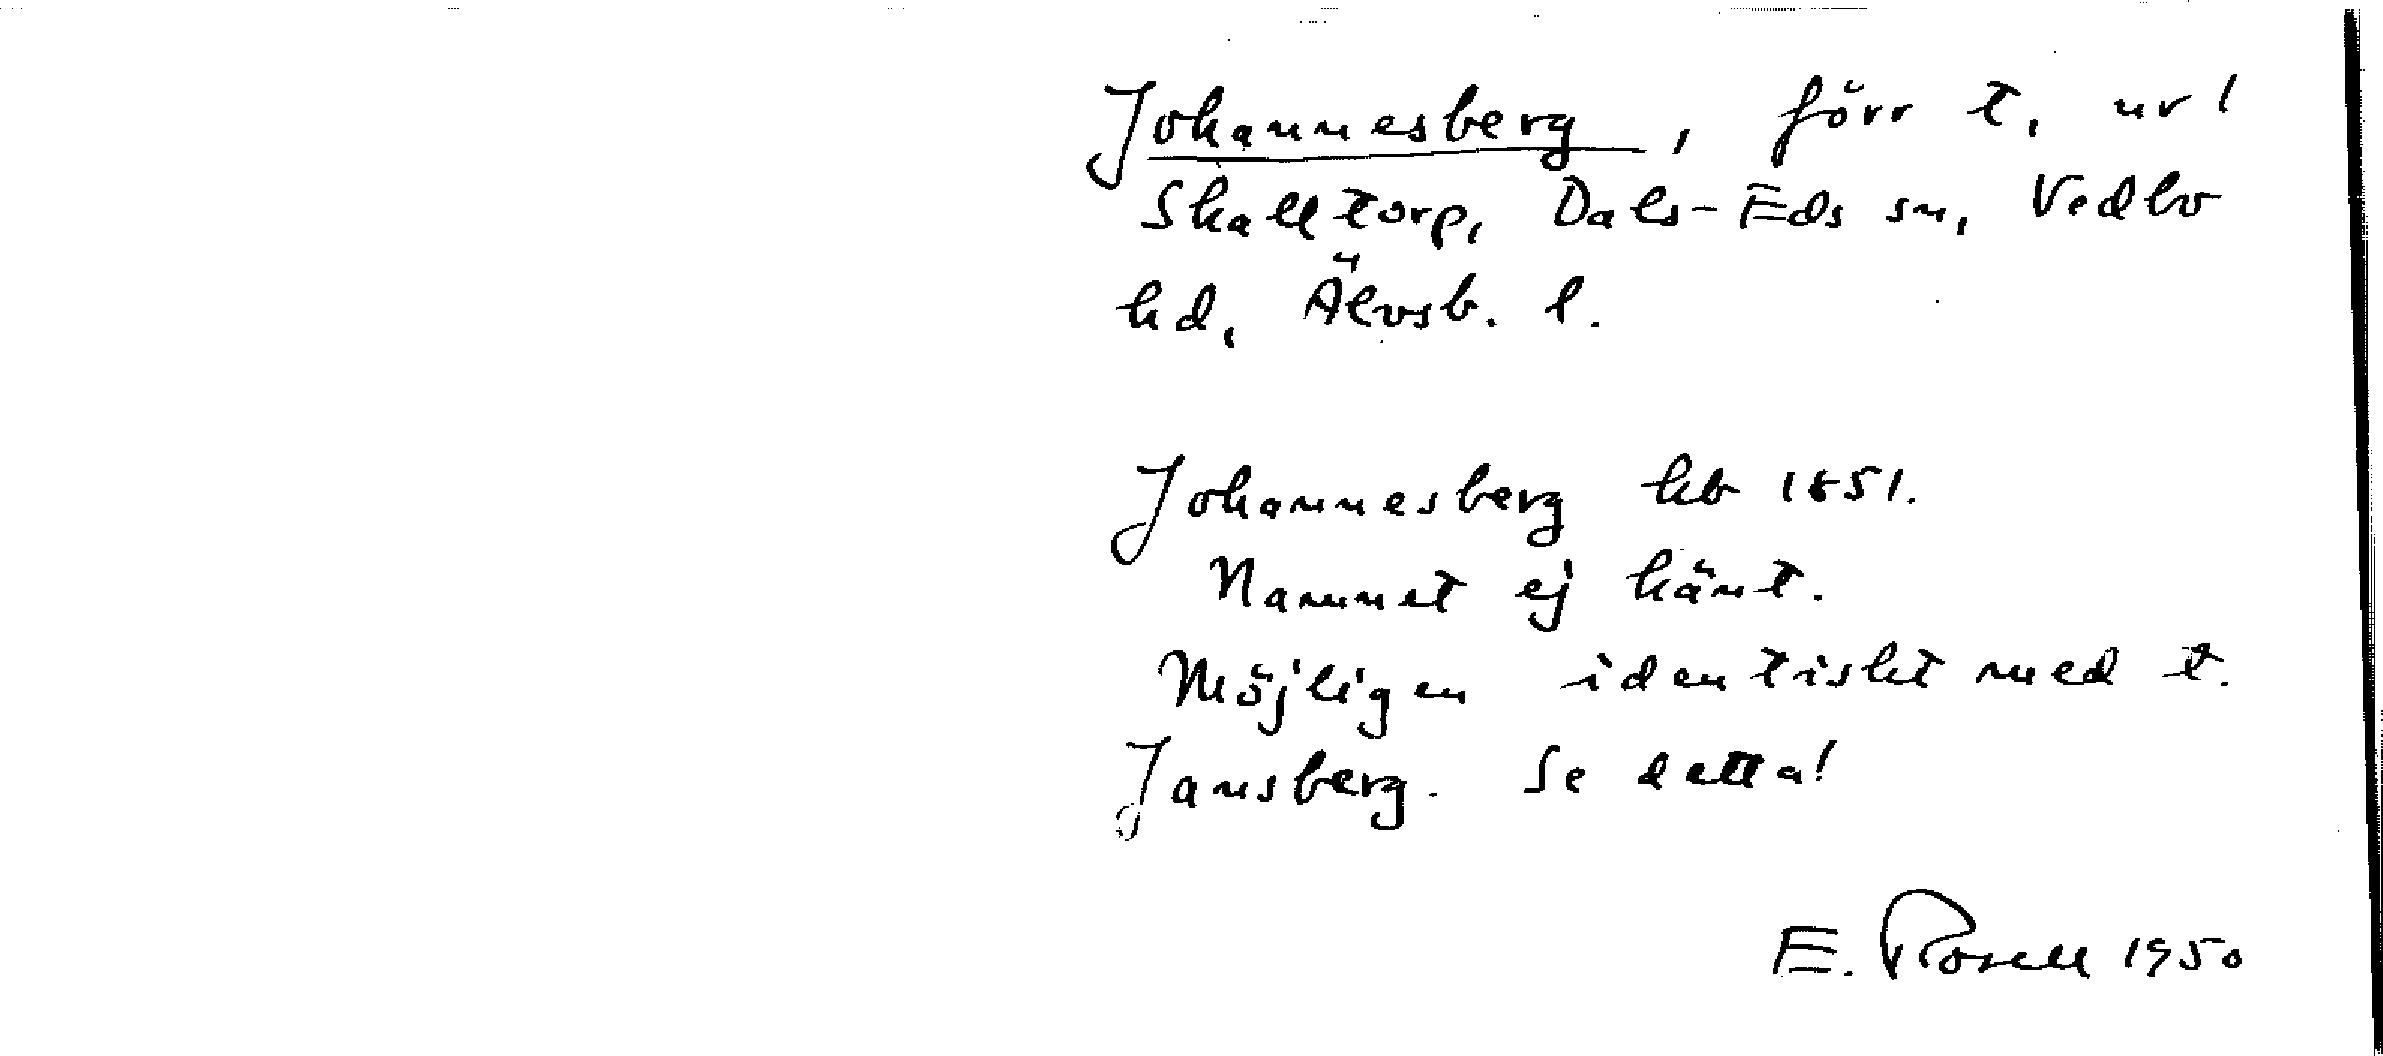 Johannesberg, förr t. ur 1
Skalltorp, Dals-Eds sn, Vedbo
hd, Älvsb. l.
Johannesberg hb 1851.
Namnet ej känt.
Möjligen identiskt med t.
Jansberg. Se detta!
E. Rosell 1950